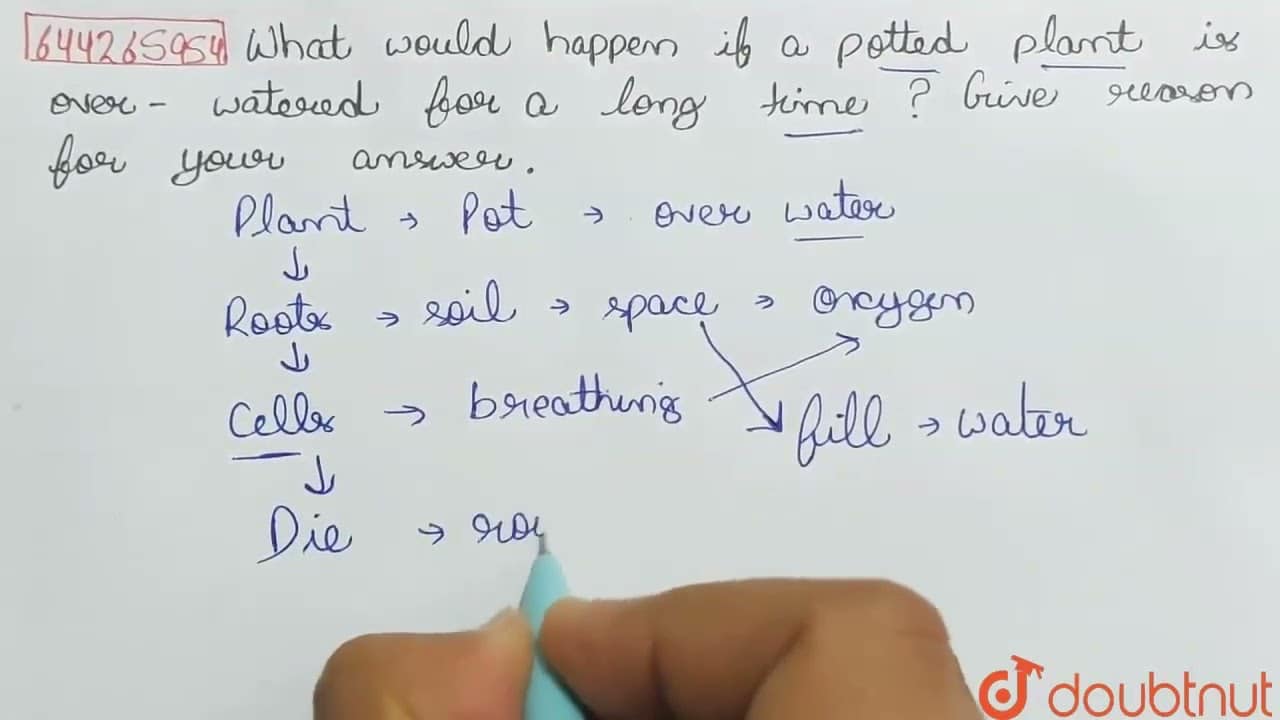 644265954 What would happen if a potted plant is
over - watered for a long time ? Give reason
for your answer.
Plant → Pot → over water
↓
Roots → soil → space → oxygen
↓
Cells → breathing
fill → water
↓
Die → ro
doubtnut